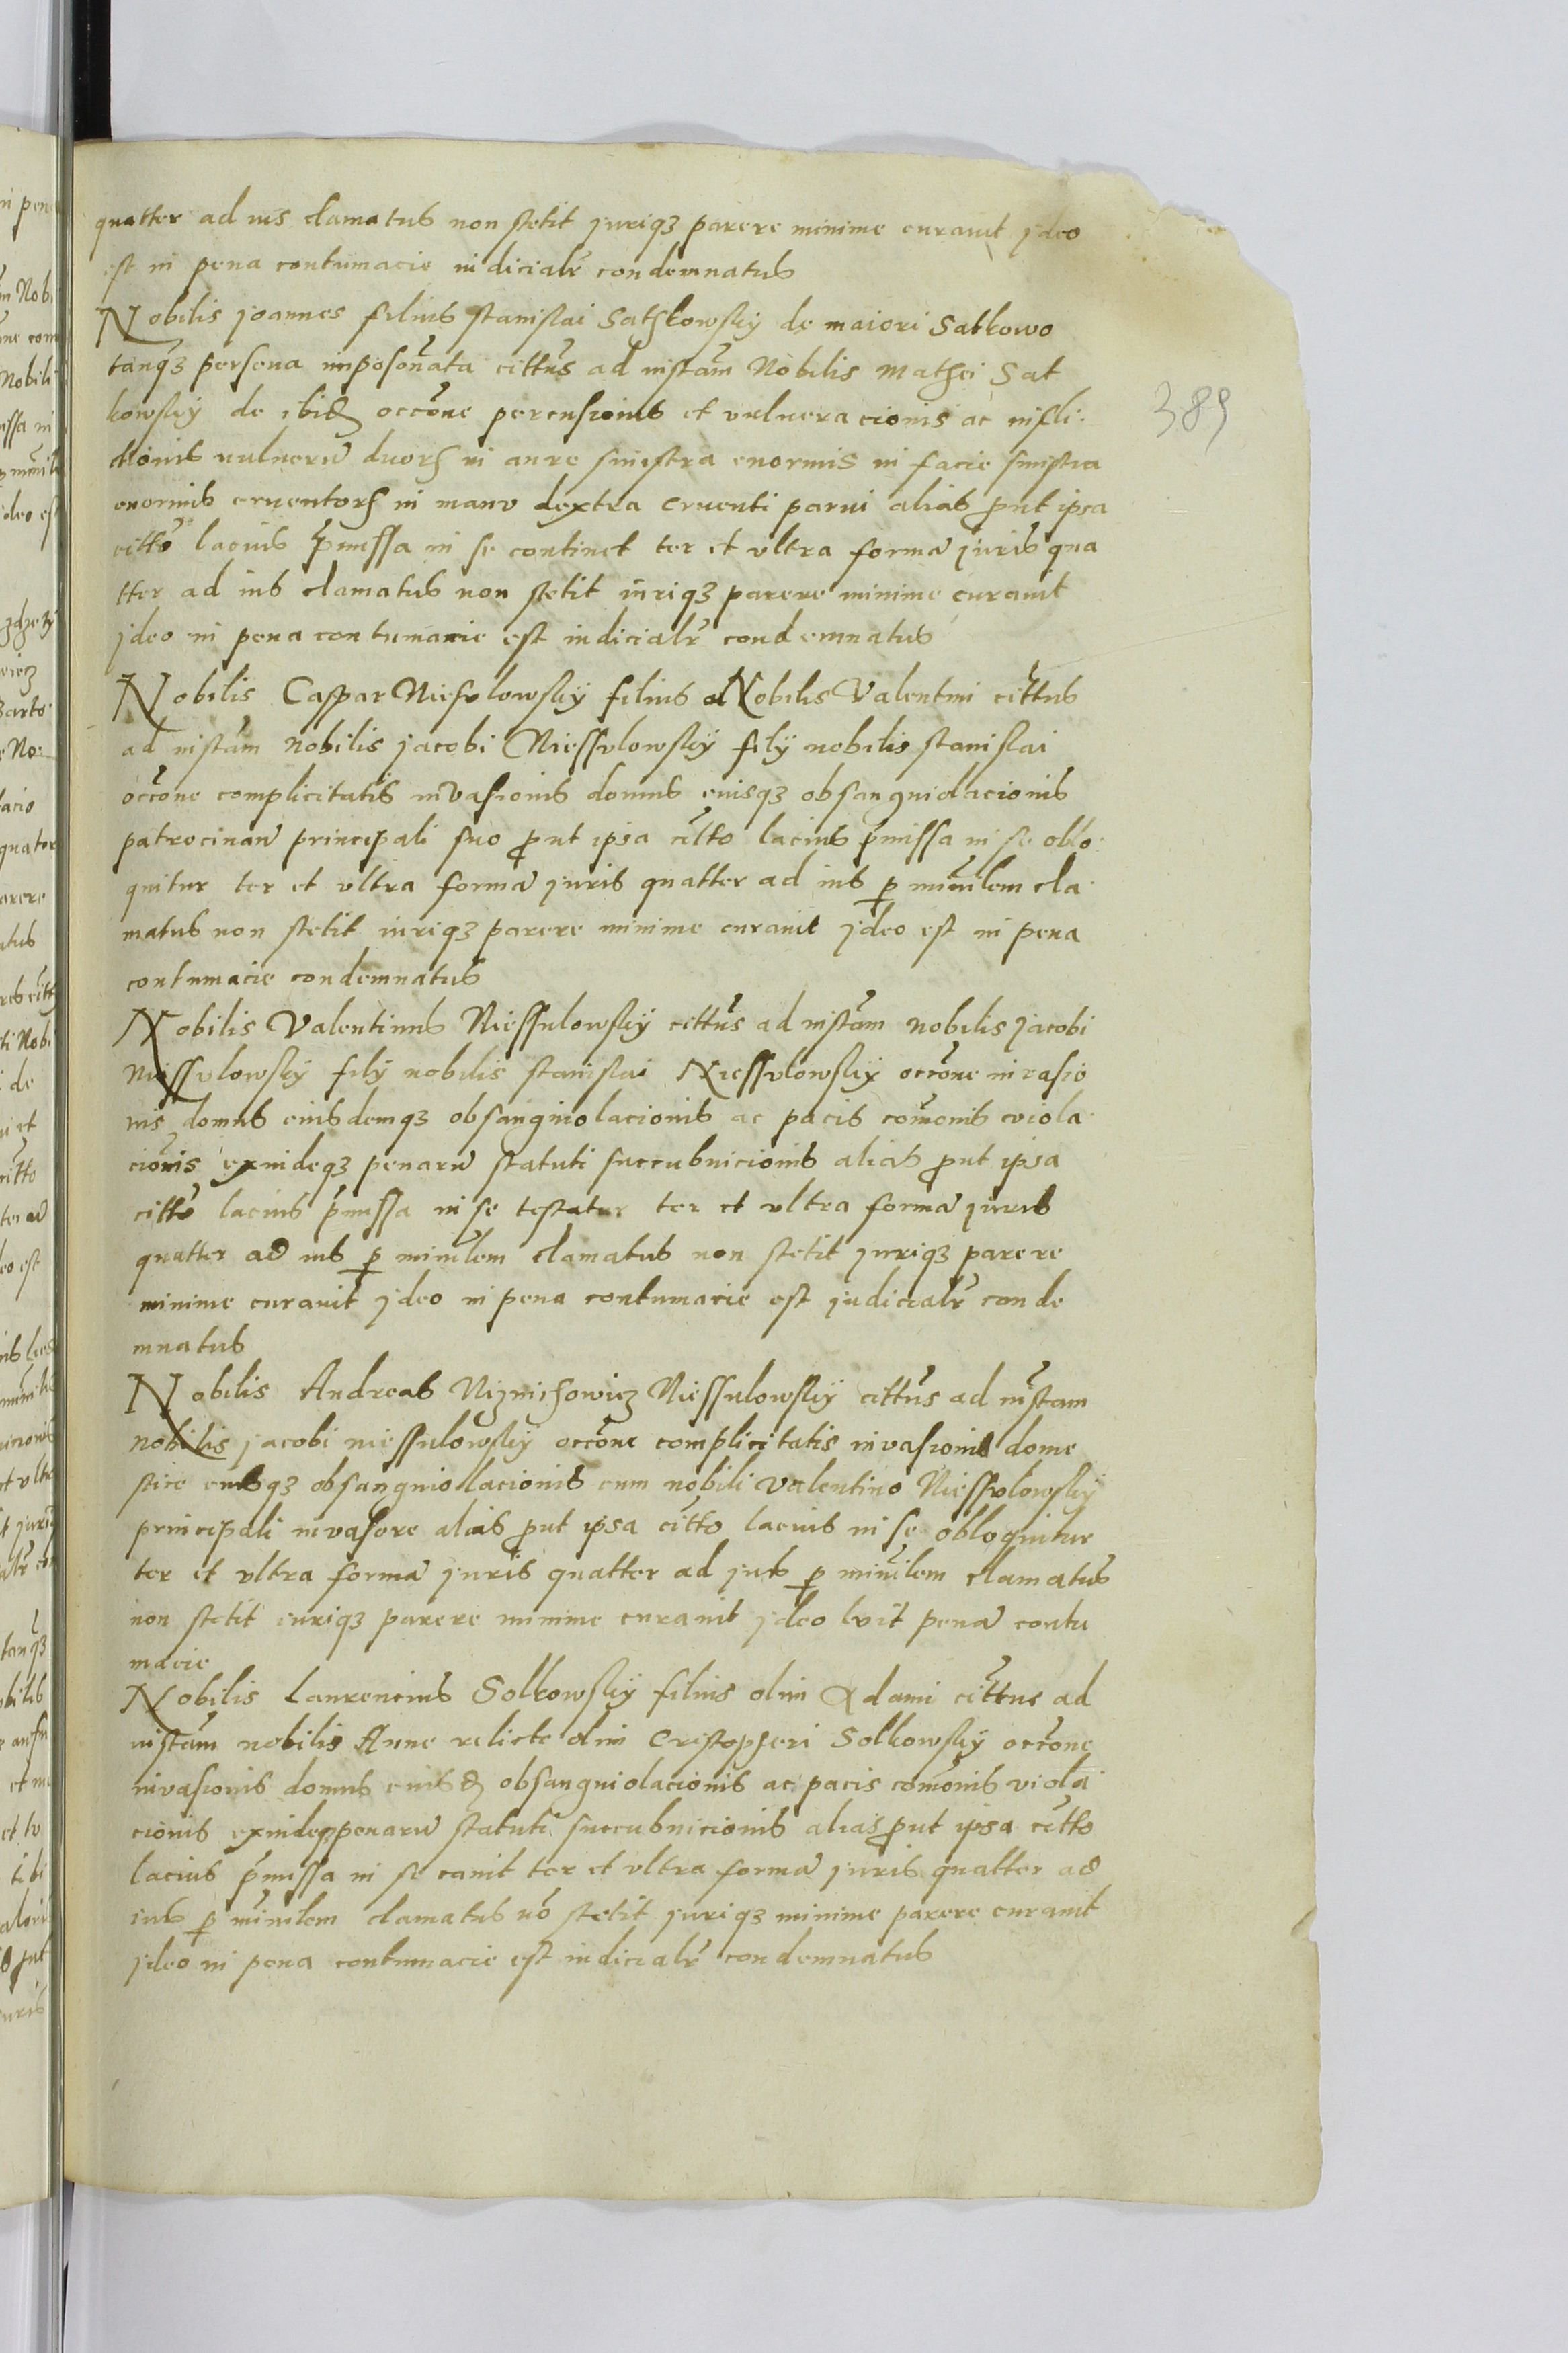 quatter ad ius clamatus non stetit juriqꝫ parere minime curauit jdeo
est in pena contumacie iudicialr̄ condemnatus
Nobilis joannes filius stanislai Sathkowskÿ de maiori Satkowo
tanqꝫ persona imposon̄ata cittūs ad instām Nobilis Mathei Sat
kowskÿ de ibid occōne percusionis et vulneracionis ac infli
ctionis vulnerū duorum in aure sinistra enormis in facie sinistra
enormis cruentorum in manu dextra cruenti parui alias ꝓut ipsa
cittō lacius p̄missa in se continet ter et vltra formā juris qua
tter ad ius clamatus non stetit iuriqꝫ parere minime curauit
jdeo in pena contumacie est iudicialr̄ condemnatus
Nobilis Caspar Niesvlowskÿ filius Nobilis Valentini cittūs
ad instām nobilis jacobi Niessvlowskÿ filÿ nobilis stanislai
occōne complicitatis invasionis domus eiusqꝫ obsanguiolacionis
patrocinanō principali suo ꝓut ipsa cittō lacius p̄missa in se oblo
quitur ter et vltra formā juris quatter ad ius ꝑ min̄lem cla
matus non stetit iuriqꝫ parere minime curauit jdeo est in pena
contumacie condemnatus
Nobilis Valentinus Niessulowskÿ cittūs ad instām nobilis jacobi
Niessvlowskÿ filÿ nobilis stanislai Niessvlowskÿ occōne invasio
nis domus eiusdemqꝫ obsanguiolacionis ac pacis com̄onis viola
cionis exindeqꝫ penarū statuti succubuicionis alias ꝓut ipsa
cittō lacius p̄missa in se testatur ter et vltra formā juris
quatter ad ius ꝑ min̄lem clamatus non stetit juriqꝫ parere
minime curauit jdeo in pena contumacie est judicialr̄ conde
mnatus
Nobilis Andreas Niznichowicz Niessulowskÿ cittūs ad instām
nobilis jacobi niessulowskÿ occōne complicitatis invasionis dome
stice eiusqꝫ obsanguiolacionis cum nobili Valentino Niessvlowskÿ
principali invasore alias ꝓut ipsa cittō lacius in se obloquitur
ter et vltra formā juris quatter ad jus ꝑ min̄lem clamatus
non stetit iuriqꝫ parere minime curauit jdeo luit penā contu
macie
Nobilis Laurencius Solkowskÿ filius olim Adami cittūs ad
instām nobilis Anne relicte olim Cristopheri Solkowskÿ occōne
invasionis domus eiusd obsanguiolacionis ac pacis com̄onis viola
cionis exindeqꝫ penarū statuti succubuicionis alias ꝓut ipsa cittō
lacius p̄missa in se canit ter et vltra formā juris quatter ad
ius ꝑ min̄lem clamatus nō stetit juriqꝫ minime parere curauit
jdeo in pena contumacie est iudicialr̄ condemnatus
389